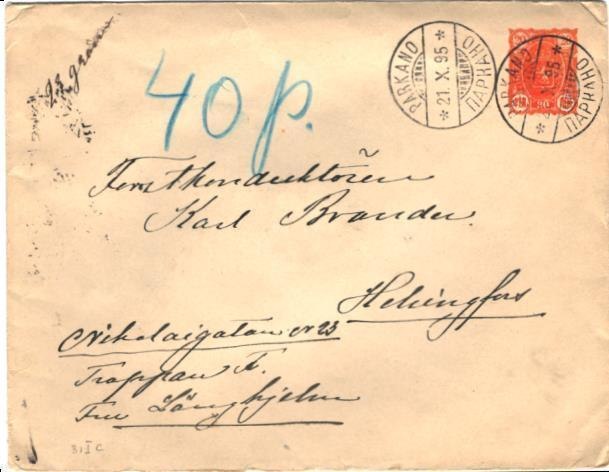 PARKANO
* 21.X.95 *
ПАРКАНО
PARKANO
X.95 *
ПАРКАНО
20
40 p.
Forstkonduktören
Karl Brander.
Helsingfors
Nikolaigatan N 23
Trappan A.
Fru Långhjelm
31 I C